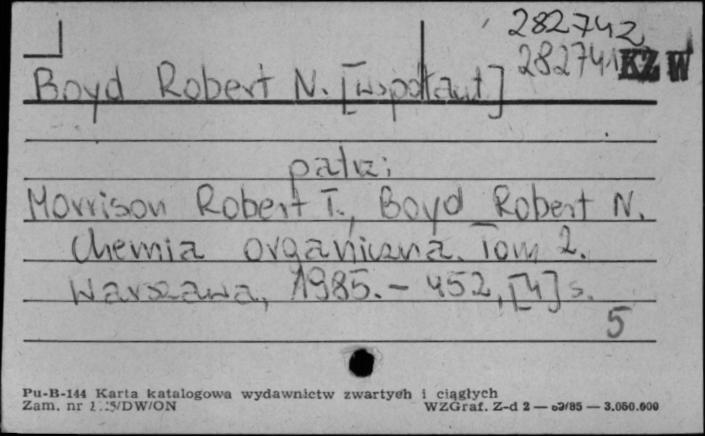 282742
282741 KZ W
Boyd Robert N. [współaut]
patrz:
Morrison Robert T., Boyd Robert N.
Chemia organiczna. Tom 2.
Warszawa, 1985. – 452, [4] s.
5
Pu-B-144 Karta katalogowa wydawnictw zwartych i ciągłych
Zam. nr /DW/ON WZGraf. Z-d 2 — /85 — 3.050.000